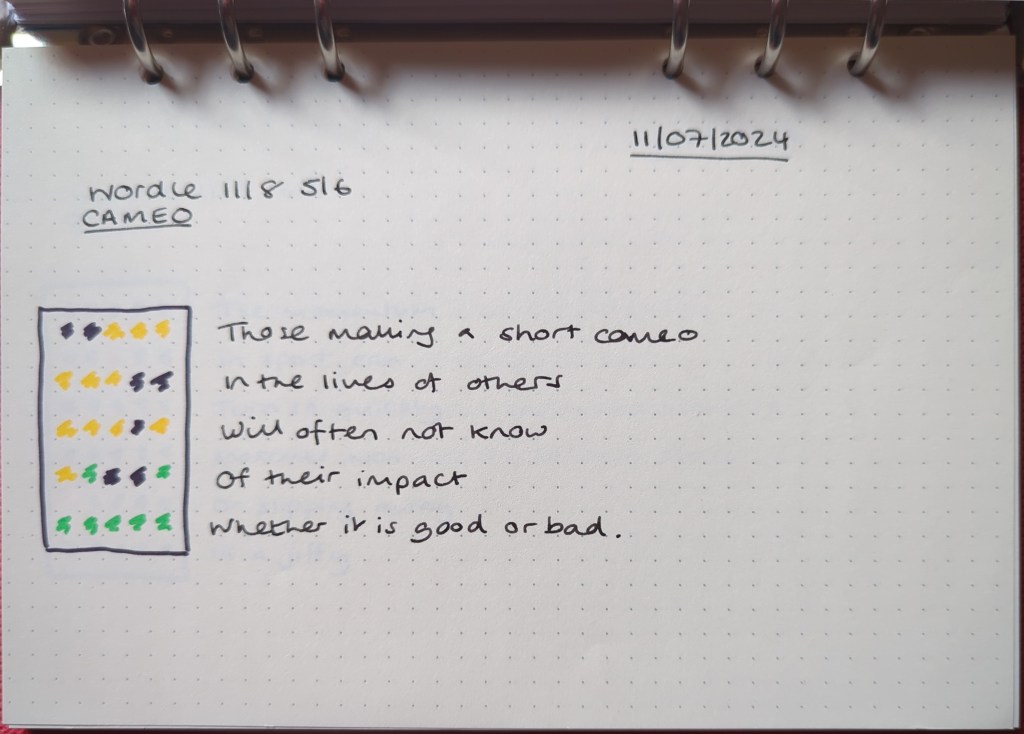 11/07/2024
Wordle 1118 5/6
CAMEO
Those making a short cameo
In the lives of others
Will often not know
Of their impact
Whether it is good or bad.